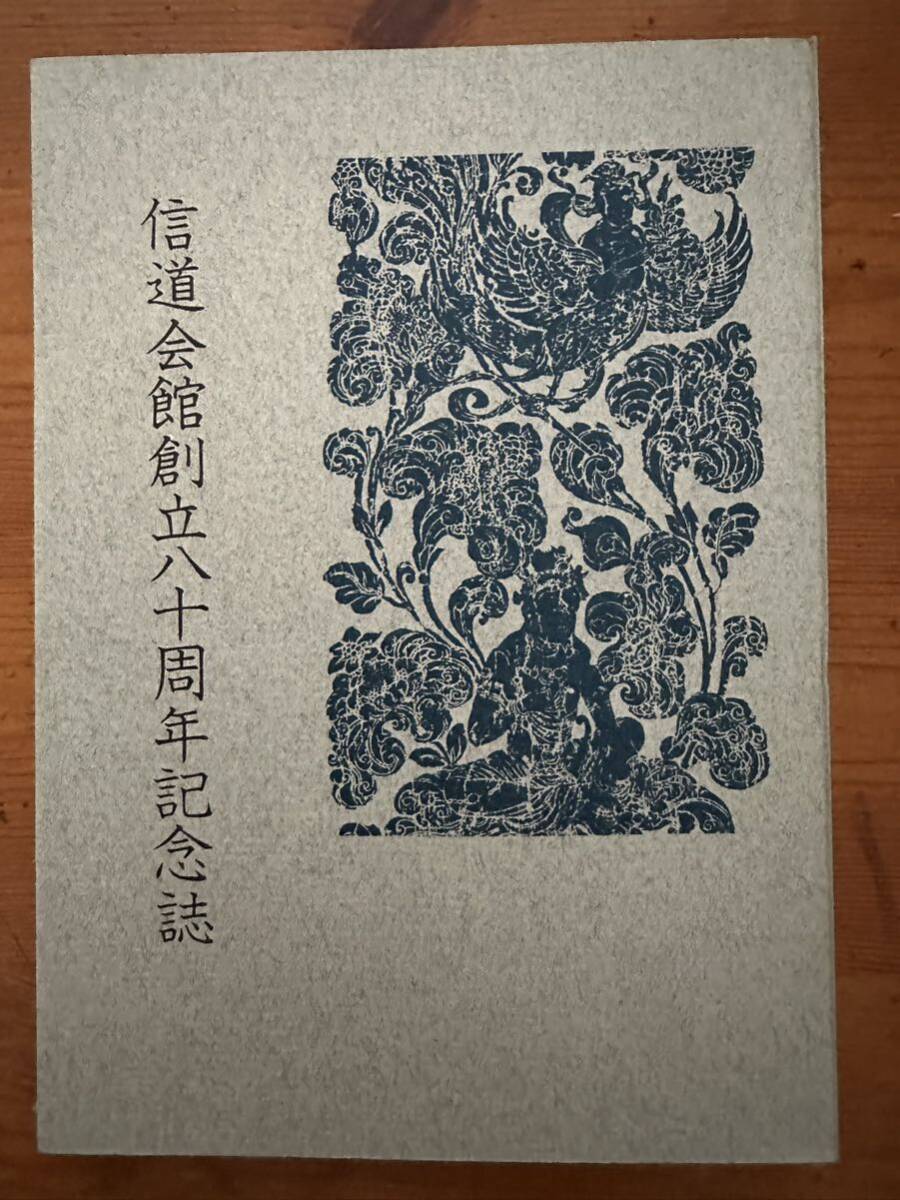 信道会館創立八十周年記念誌